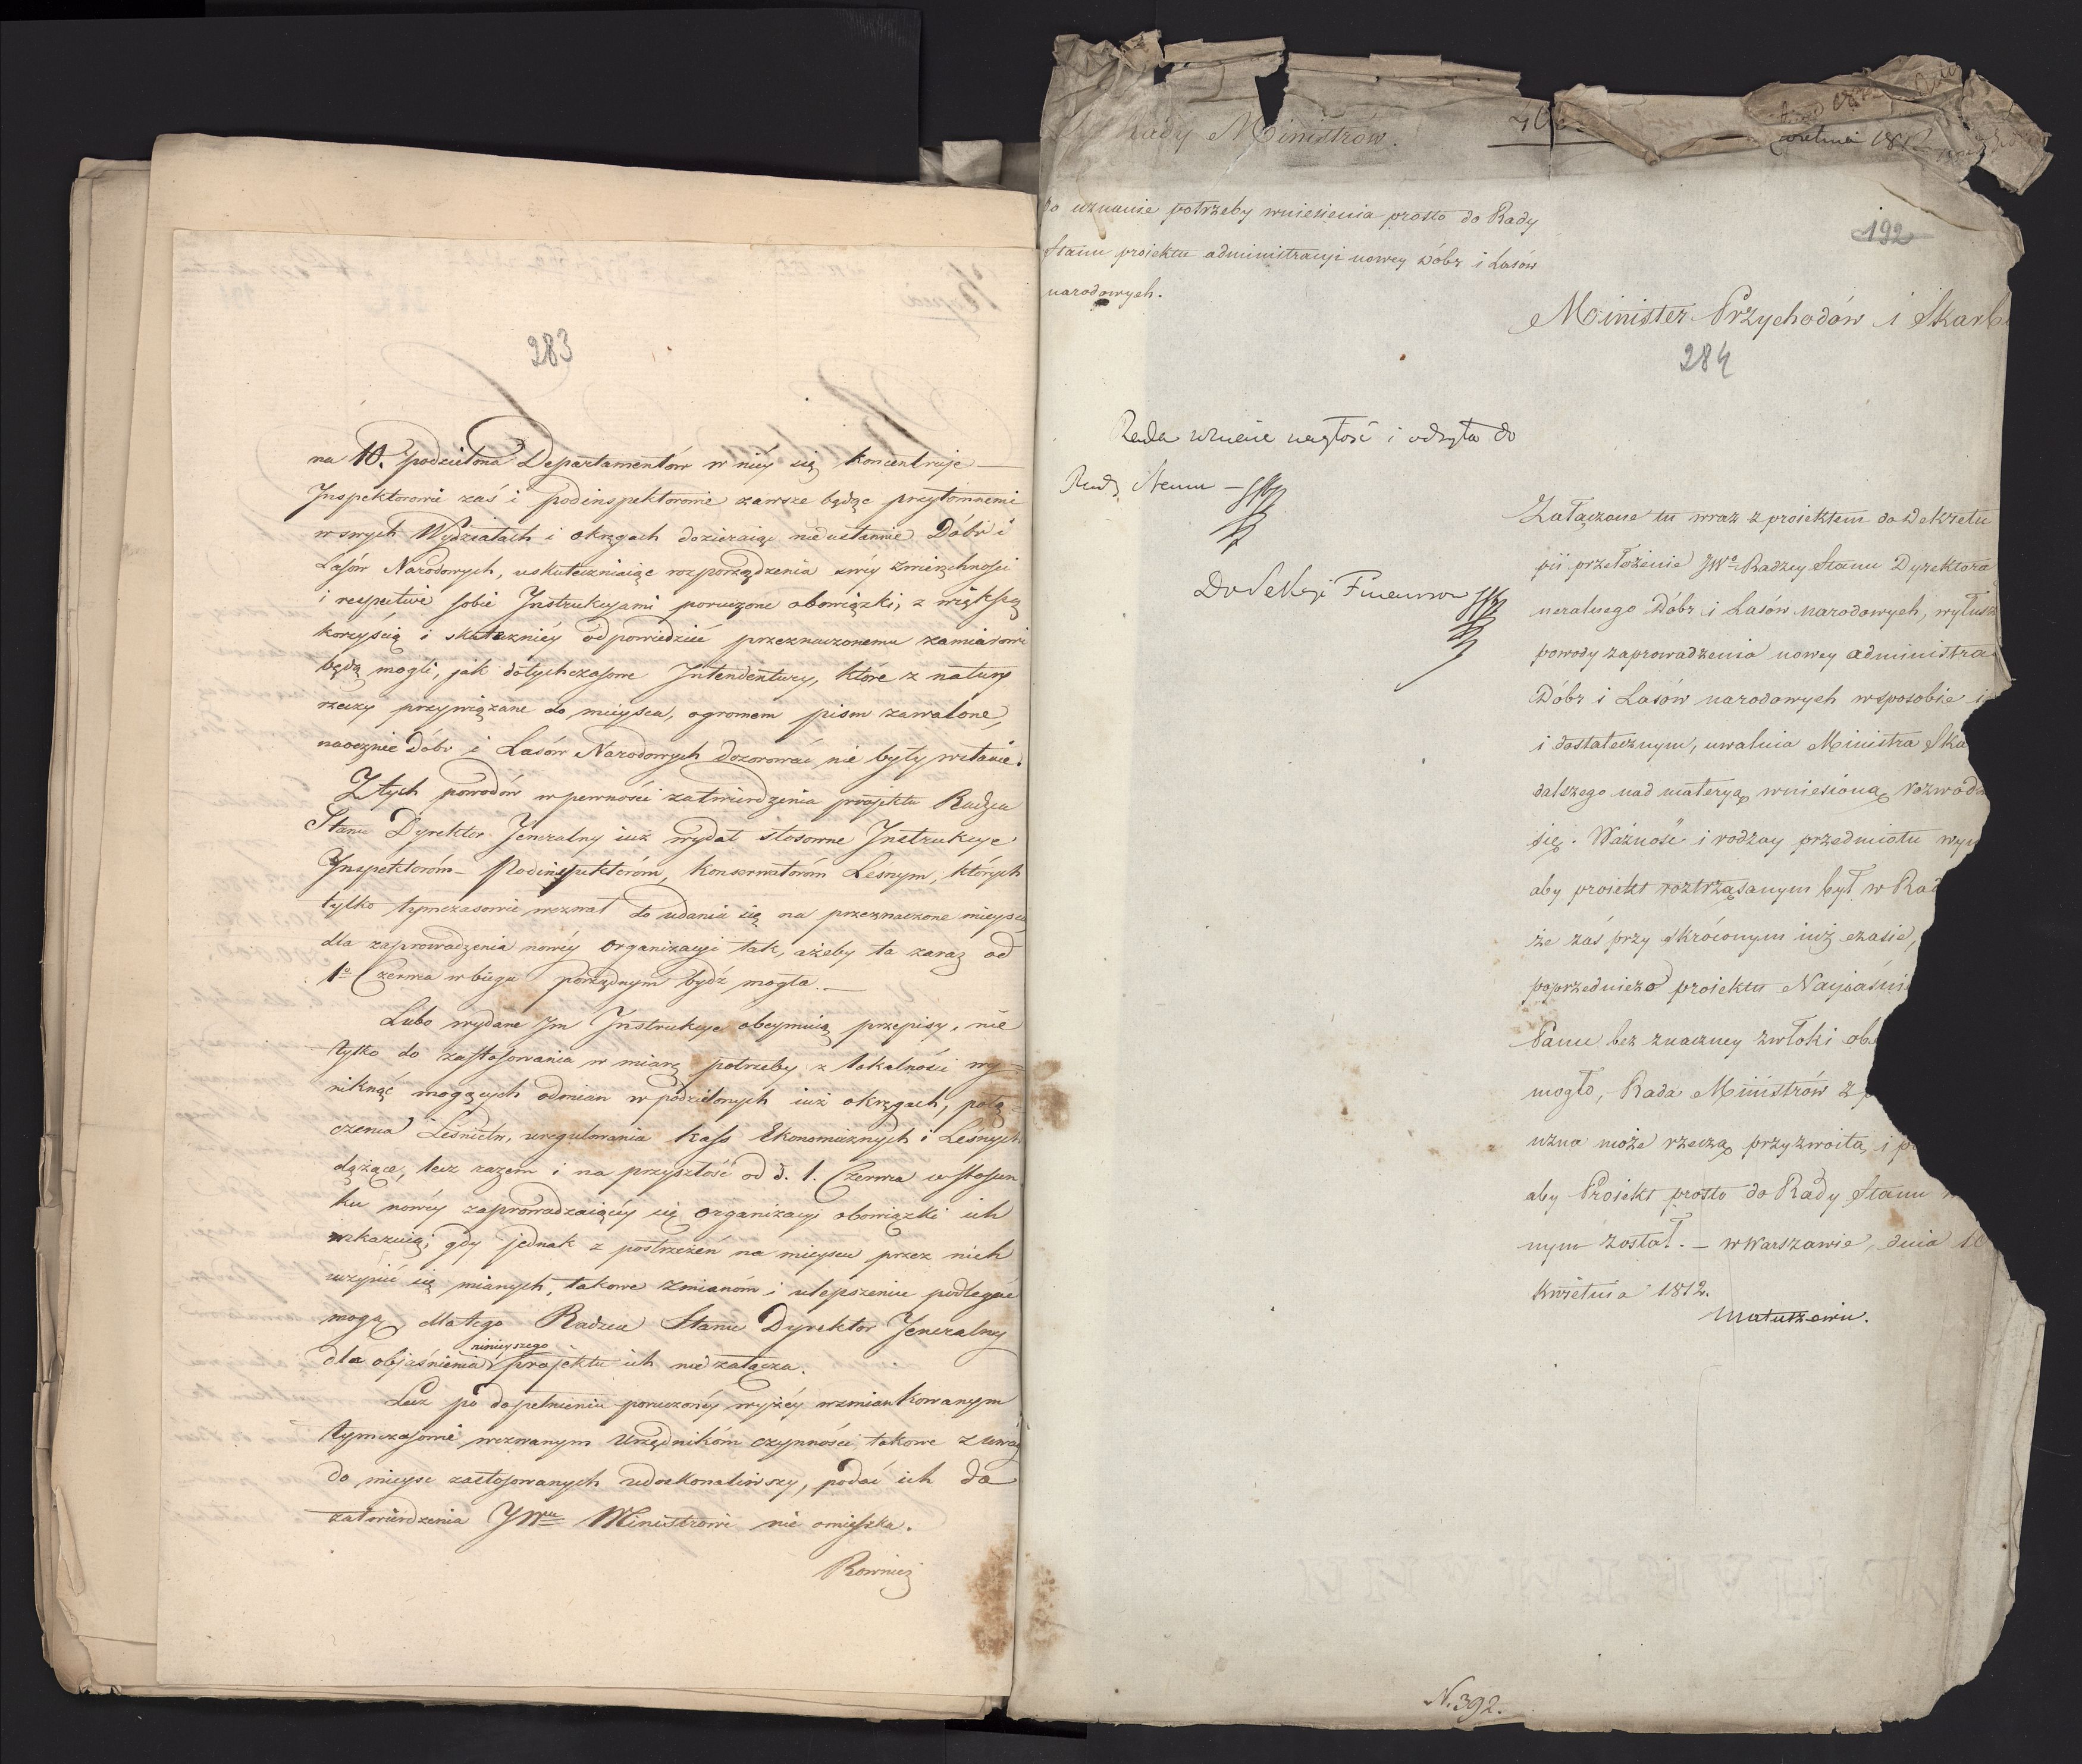 283
na 10. podzielona Departamentów w niéy się koncentruje —
Inspektorowie zaś i podinspektorowie zawsze będąc przytomnemi
w swych Wydziałach i okręgach dozieraiąc nieustannie Dóbr i
Lasów Narodowych, uskuteczniaiąc rozporządzenia swéy zwierzchności
i respective sobie Instrukcyami poruczone obowiązki, z większą
korzyścią i skuteczniéy odpowiedzieć przeznaczonemu zamiarowi
będą mogli, jak dotychczasowe Intendentury, które z natury
rzeczy przywiązane do mieysca, ogromem pism zawalone,
naocznie Dóbr i Lasów Narodowych dozorować nie były wstanie.
Z tych powodów w pewności zatwierdzenia projektu Radzca
Stanu Dyrektor Jeneralny iuż wydał stosowne Instrukcye
Inspektoróm – Podinspektoróm, Konserwatoróm Leśnym, których
tylko tymczasowie wezwał do udania się na przeznaczone mieysca
dla zaprowadzenia nowéy organizacyi tak, ażeby ta zaraz od
1o Czerwca w biegu porządnym bydź mogła. —
Lubo wydane Im Instrukcye obeymuią przepisy, nie
tylko do zastosowania w miarę potrzeby z lokalności wy-
niknąć mogących odmian w podzielonych iuż okręgach, połą-
czenia Leśnictw, uregulowania kass Ekonomicznych i Leśnych
dążące, lecz razem i na przyszłość od d. 1. Czerwca w stosun
ku nowéy zaprowadzaiącéy się organizacyi obowiązki ich
wskazuią; gdy jednak z postrzeżeń na mieyscu przez nich
uczynić się mianych, takowe zmianóm i ulepszeniu podlegać
mogą, dlatego Radzca Stanu Dyrektor Jeneralny
ninieyszego
dla objaśnienia projektu ich nie załącza.
Lecz po dopełnieniu poruczonéy wyżéy wzmiankowanym
tymczasowie wezwanym Urzędnikóm czynności takowe z uwag
do mieysc zastosowanych udoskonaliwszy, podać ich do
zatwierdzenia JWmu Ministrowi nie omieszka.
Rownież
Rady Ministrów.
kwietnia 1812
do uznanie potrzeby wniesienia prosto do Rady
Stanu proiektu administracyi nowey Dóbr i Lasów
narodowych.
192
Minister Przychodów i Skarbu
284
Rada uznaie nagłość i odsyła do
Rady Stanu —
Do Sekcyi Finansow
Załączone tu wraz z proiektem do Dekretu
pii przełożenie JWo Radzcy Stanu Dyrektora
neralnego Dóbr i Lasów narodowych, wyłusz
powody zaprowadzenia nowey administra
Dóbr i Lasów narodowych w sposobie
i dostatecznym, uwalnia Ministra Ska
dalszego nad materyą wniesioną rozwodz
się. Ważność i rodzay przedmiotu wy
aby proiekt roztrząsanym był w Rad
że zaś przy skróconym iuż czasie,
poprzedniego proiektu Nayiaśni
Panu bez znaczney zwłoki ob
mogło, Rada Ministrów z
uzna może rzeczą przyzwoitą, i p
aby Proiekt prosto do Rady Stanu
nym został. — w Warszawie, dnia 10
Kwietnia 1812.
Matuszewic.
N. 392.